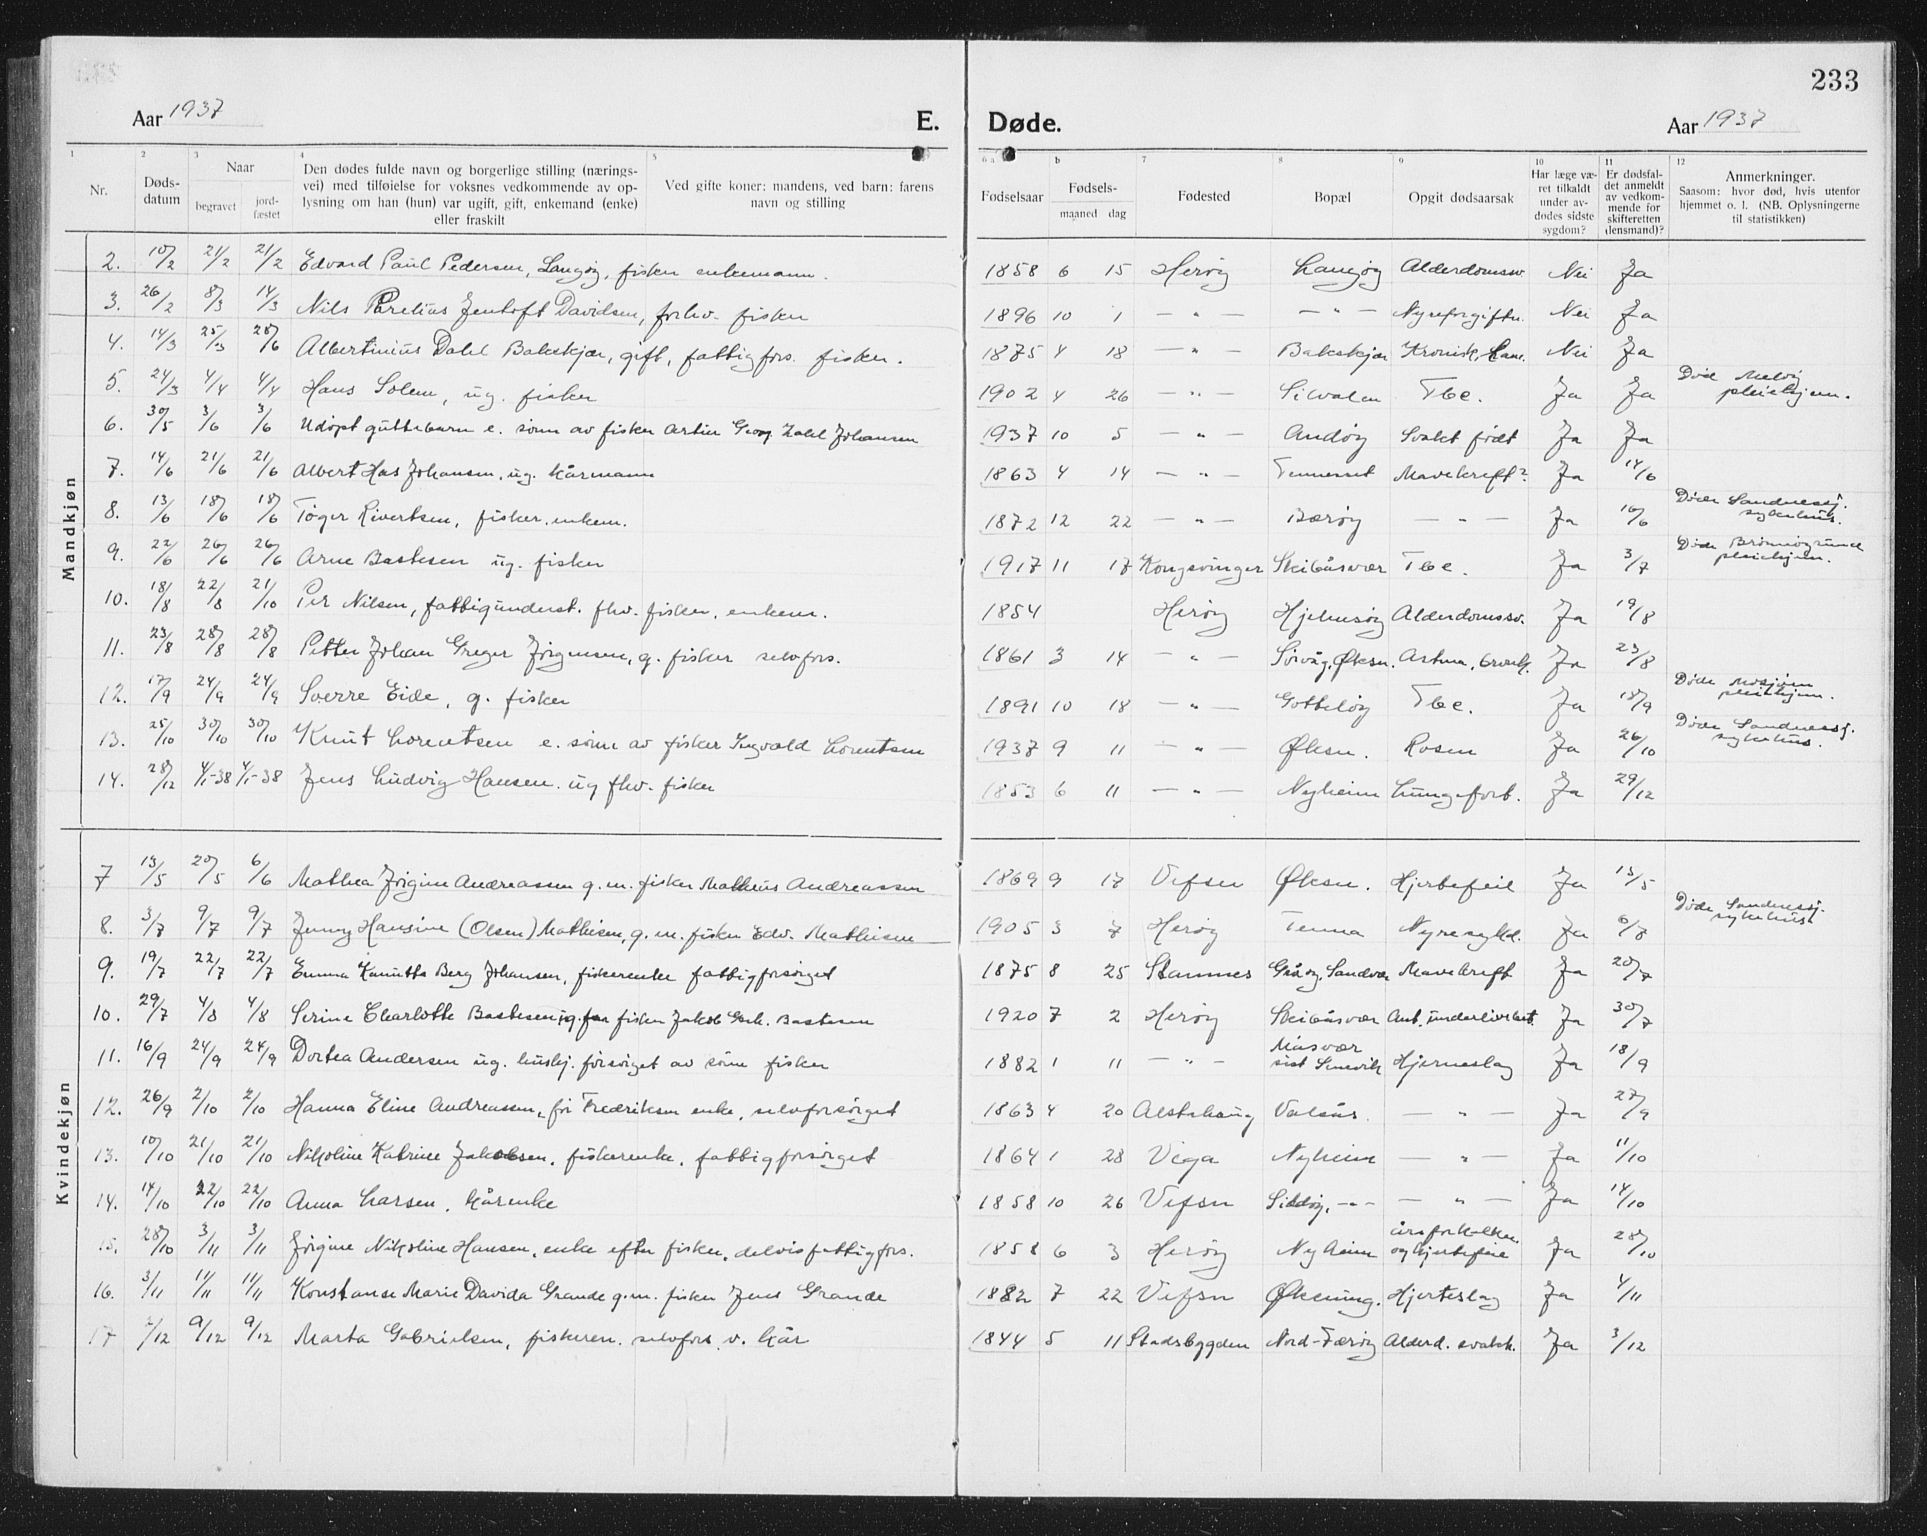 233
Aar 1937 E. Døde. Aar 1937
1 2 3 4 5 6 a b 7 8 9 10 11 12
Nr. Døds-datum Naar begravet jord-fæstet Den dødes fulde navn og borgerlige stilling (nærings-vei) med tilføielse for voksnes vedkommende av op-lysning om han (hun) var ugift, gift, enkemand (enke) eller fraskilt Ved gifte koner: mandens, ved barn: farens navn og stilling Fødselsaar Fødsels- maaned dag Fødested Bopæl Opgit dødsaarsak Har læge væ-ret tilkaldt under av-dødes sidste sygdom? Er dødsfal-det anmeldt av vedkom-mende for skifteretten (lensmand)? Anmerkninger. Saasom: hvor død, hvis utenfor hjemmet o. l. (NB. Oplysningerne til statistikken)
Mandkjøn
2. 10/2 21/2 21/2 Edvard Paul Pedersen, Langøy, fisker enkemann. 1858 6 15 Herøy Langøy Alderdomssv. Nei Ja
3. 26/2 8/3 14/3 Nils Parelius Zentoft Davidsen, forhv. fisker 1896 10 1 — " — — " — Nyreforgiftn. Nei Ja
4. 14/3 25/3 28/6 Albertinius Dahl Bakskjær, gift, fattigfors. fisker. 1875 4 18 — " — Bakskjær Kronisk Nei Ja
5. 24/3 4/4 4/4 Hans Solem, ug. fisker 1902 4 26 — " — Silvalen Tbc. Ja Ja Død Meløy pleiehjem.
6. 30/5 3/6 3/6 Udøpt guttebarn e. sønn av fisker Artur Georg Johansen 1937 10 5 — " — Andøy Svakt født Ja Ja
7. 14/6 21/6 21/6 Albert Has Johansen, ug. kårmann 1863 4 14 — " — Tennesset Mavekreft? Ja 14/6
8. 13/6 18/6 18/6 Tøger Rivertsen, fisker, enkem. 1872 12 22 — " — Bærøy — " — Ja 16/6 Døde Sandnessj. sykehus.
9. 22/6 26/6 26/6 Arne Bastesen ug. fisker 1917 11 17 Kongsvinger Skibåsvær Tbc. Ja 3/7 Døde Brønnøysund pleiehjem.
10. 18/8 22/8 21/10 Per Nilsen, fattigunderst. fhv. fisker, enkem. 1854 Herøy Hjelmsøy Alderdomssv. Ja 19/8
11. 23/8 28/8 28/8 Petter Johan Greger Jørgensen, g. fisker selvfors. 1861 3 14 — " — Sørvåg, Øksn. Astma, bronk. Ja 23/8
12. 17/9 24/9 24/9 Sverre Eide, g. fisker 1891 10 18 — " — Gotteløy Tbc. Ja 18/9 Døde Mosjøen pleiehjem.
13. 25/10 30/10 30/10 Knut Lorentsen e. sønn av fisker Ingvald Lorentsen 1937 9 11 — " — Øksn. Rosen Ja 26/10 Døde Sandnessj. sykehus.
14. 28/12 4/1-38 4/1-38 Jens Ludvig Hansen. ug fhv. fisker 1853 6 11 — " — Nyheim Lungeforb. Ja 29/12
Kvindekjøn
7 13/5 20/5 6/6 Mathea Jørgine Andreassen g. m. fisker Matheus Andreassen 1869 9 17 Vefsn Øksn. Hjertefeil Ja 13/5
8. 3/7 9/7 9/7 Jenny Hansine (Olsen) Mathisen, g. m. fisker Edv. Mathisen 1905 3 7 Herøy Tenna Nyresykd. Ja 6/8 Døde Sandnessj. sykehus.
9. 19/7 22/7 22/7 Emma Kanutts Berg Johansen, fiskerenke fattigforsørget 1875 8 25 Stamnes Gåsøy, Sandvær Mavekreft Ja 20/7
10. 29/7 4/8 4/8 Serine Charlotte Bastesen ug. far fisker Jakob Bastesen 1920 7 2 Herøy Skibåsvær Ant. underlivbet. Ja 30/7
11. 16/9 24/9 24/9 Dortea Andersen ug. hushj. forsørget av sønn fisker 1882 1 11 — " — Måsvær sist Hjerneslag Ja 18/9
12. 26/9 2/10 2/10 Hanna Eline Andreassen, før Fredriksen enke, selvforsørget 1863 4 20 Alstahaug Valsås. — " — Ja 27/9
13. 10/10 21/10 21/10 Nikoline Katrine Jakobsen. fiskerenke. fattigforsørget 1864 1 28 Vega Nyheim — " — Ja 11/10
14. 14/10 22/10 22/10 Anna Larsen. kårenke 1858 10 26 Vefsn Sildøy, -"- — " — Ja 14/10
15. 28/10 3/11 3/11 Jørgine Nikoline Hansen, enke efter fisker, delvis fattigfors. 1858 6 3 Herøy Nyheim åreforkalkn. og hjertefeil Ja 28/10
16. 3/11 11/11 11/11 Konstanse Marie Davida Grande g. m. fisker Jens Grande 1882 7 22 Vefsn Øksning. Hjerteslag Ja 4/11
17 2/12 9/12 9/12 Marta Gabrielsen, fiskeren. selvfors. v. kår 1844 5 11 Stadsbygden Nord-Færøy Alderd. svakh. Ja 3/12